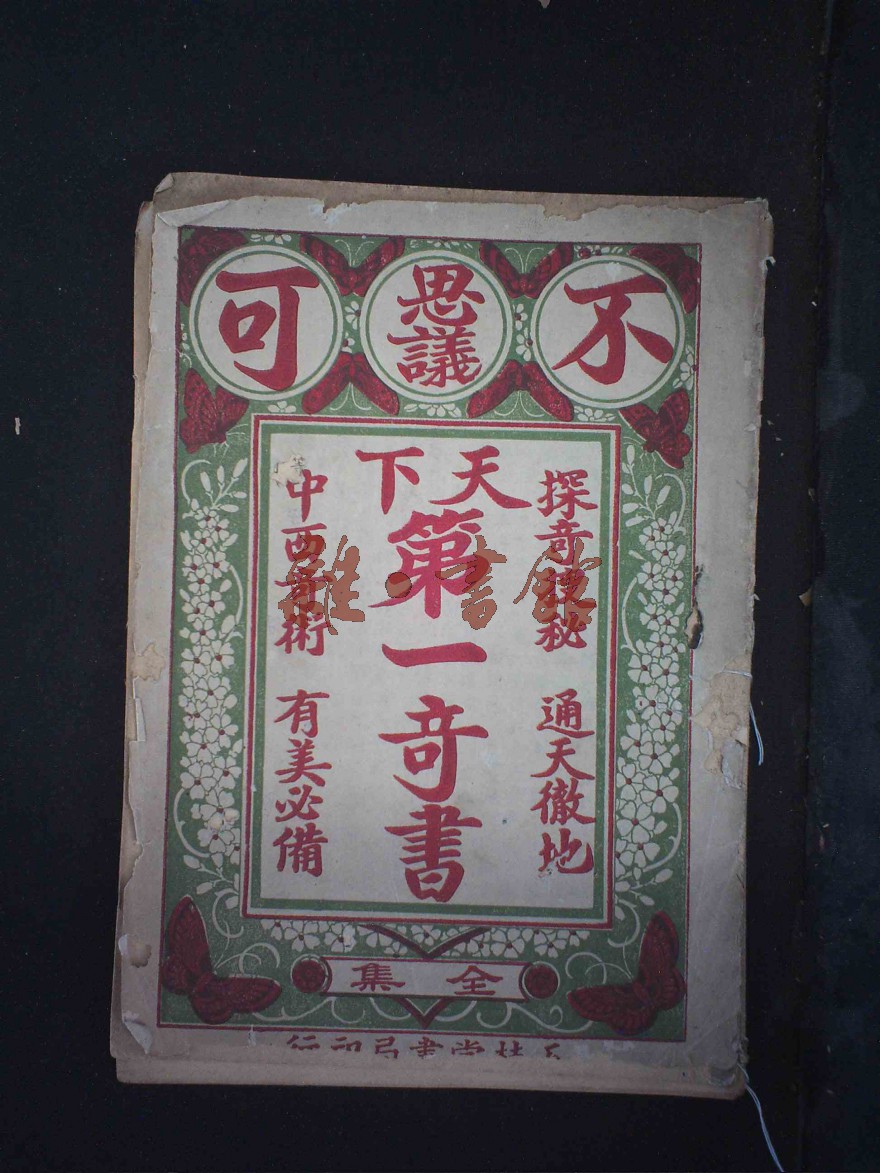 不可
思議
探奇 秘 通天徹地
天下
第一奇書
中西奇術 有美必備
全集